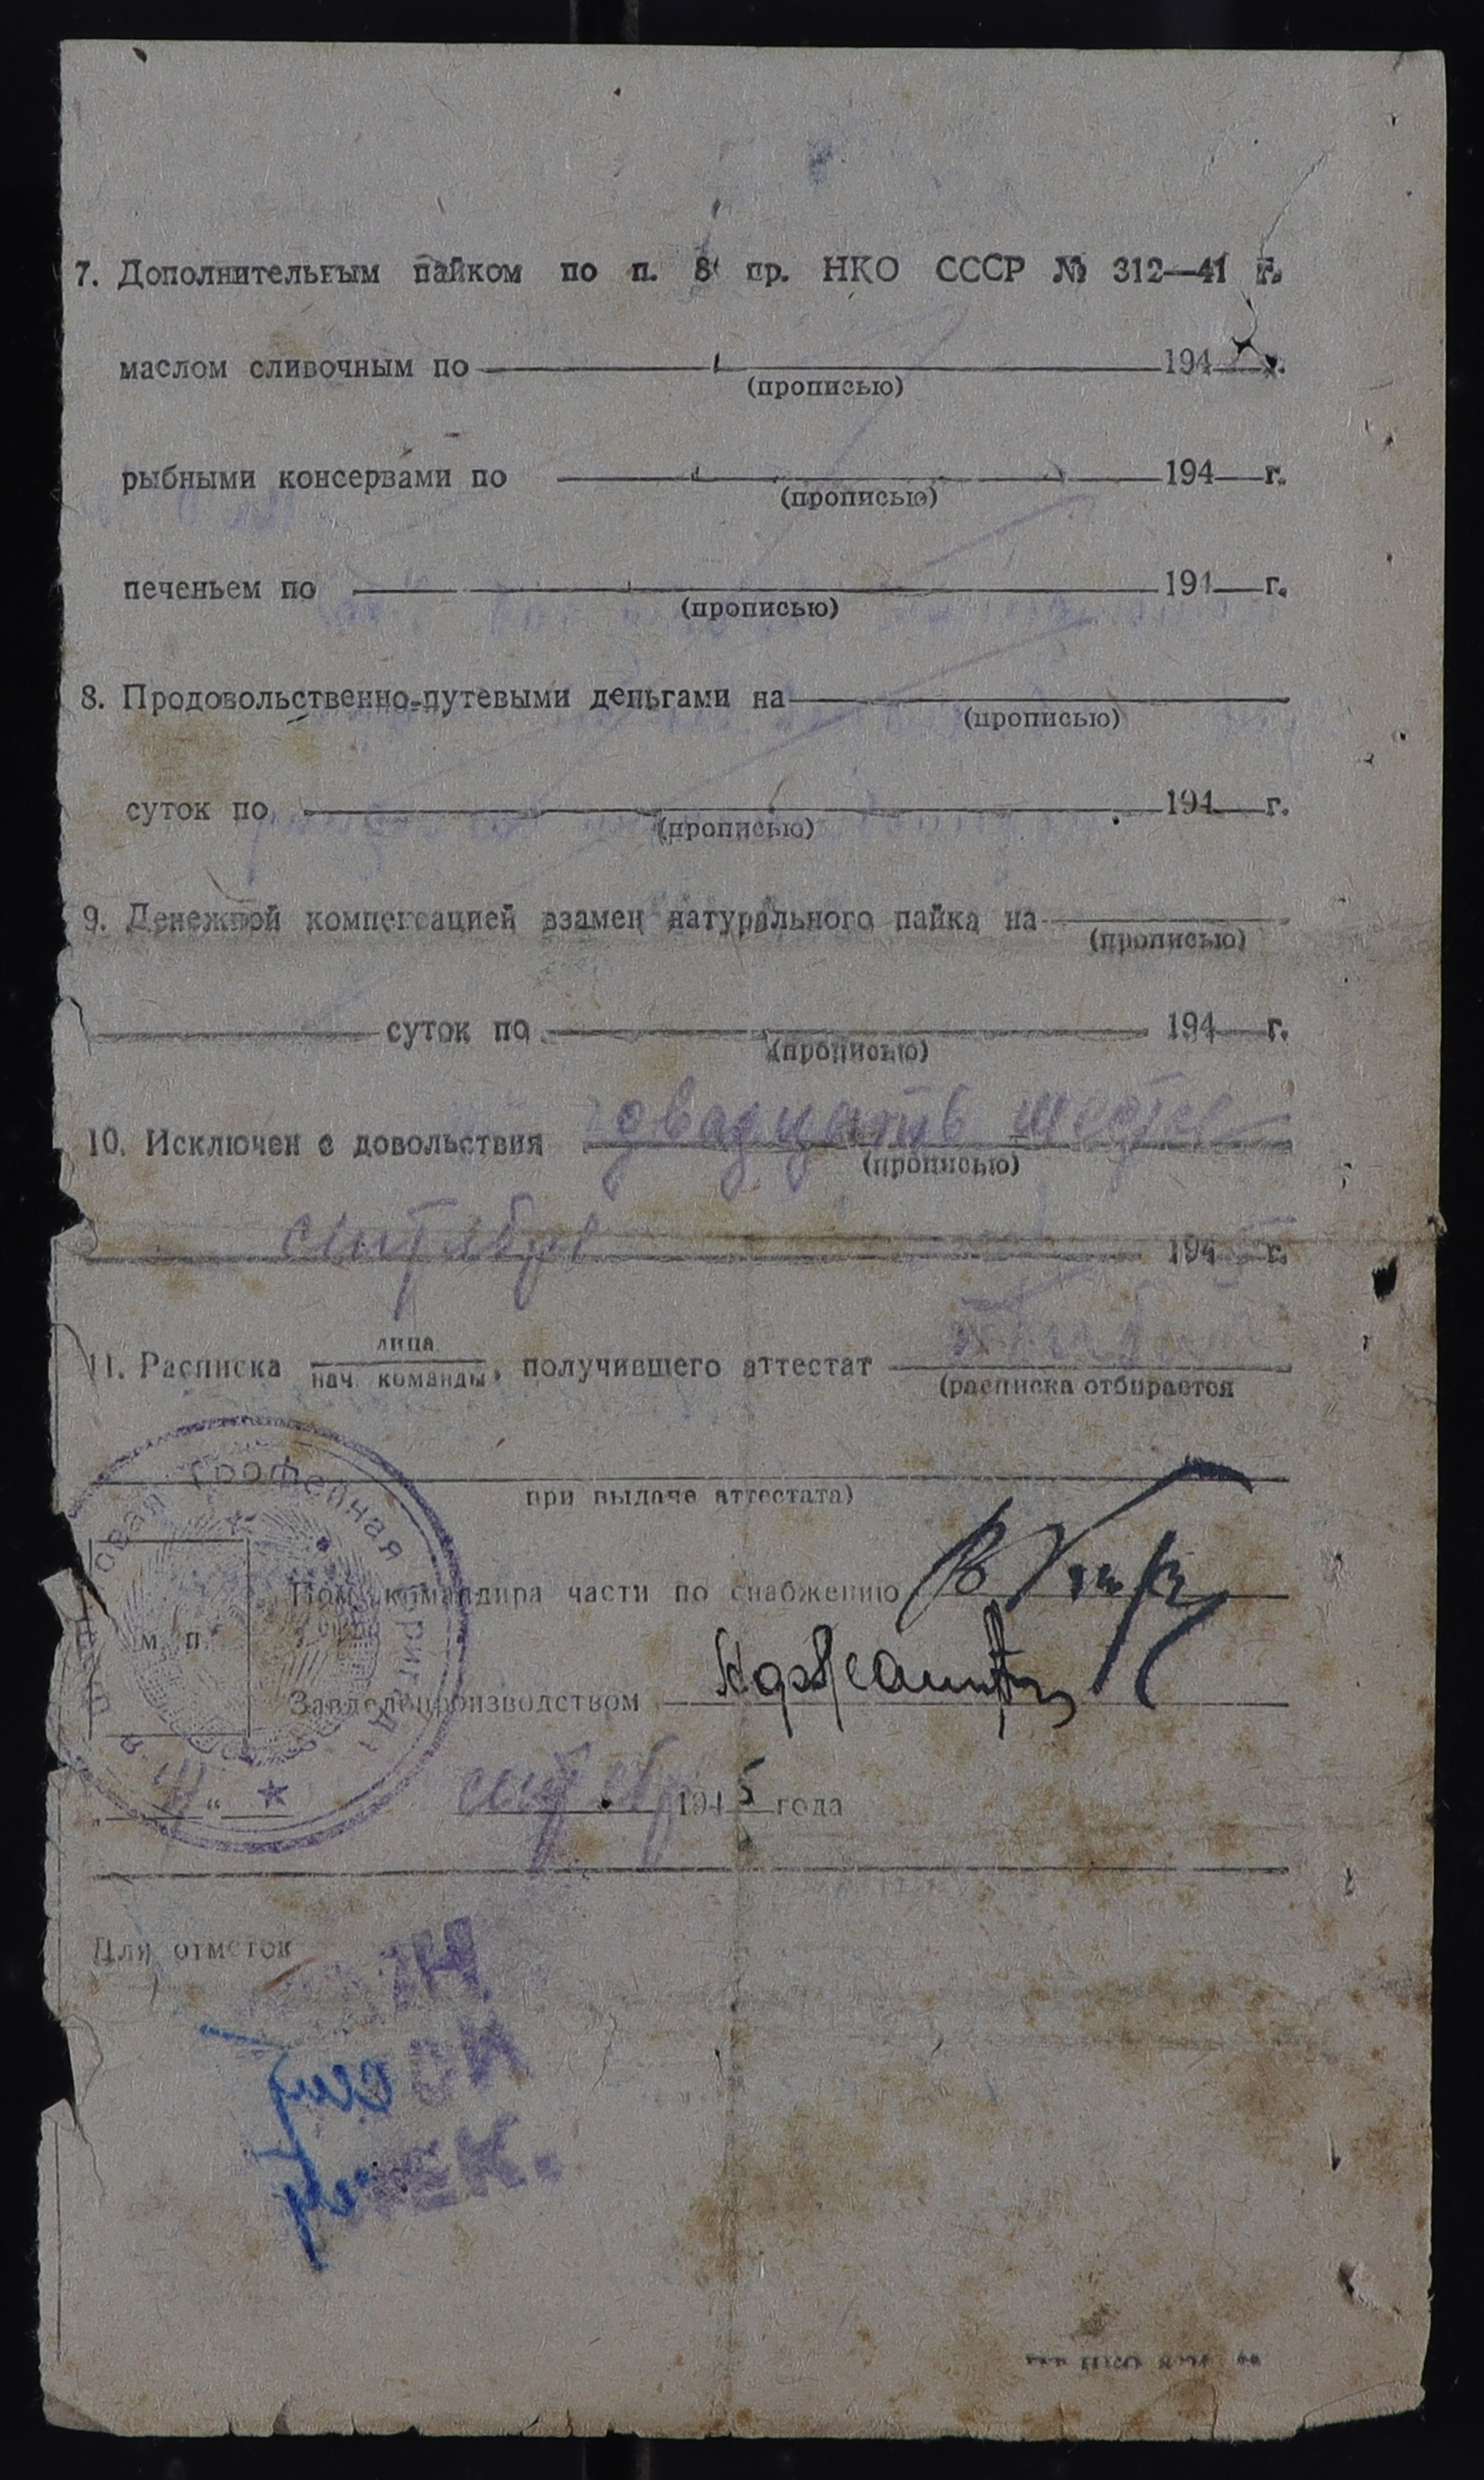 7. Дополнительным пайком по п. 8 пр. НКО СССР № 312—41 г.
маслом сливочным по 194 г.
(прописью)
рыбными консервами по 194 г.
(прописью)
печеньем по 194 г.
(прописью)
8. Продовольственно-путевыми деньгами на
(прописью)
суток по 194 г.
(прописью)
9. Денежной компенсацией взамен натурального пайка на
(прописью)
суток по 194 г.
(прописью)
10. Исключен с довольствия двадцать шесть
(прописью)
сентября 1945 г.
11. Расписка лица
нач. команды, получившего аттестат
(расписка отбирается
при выдаче аттестата)
трофейная
Пом. командира части по снабжению
м. п.
Завделопроизводством
1945 года
Для отметок